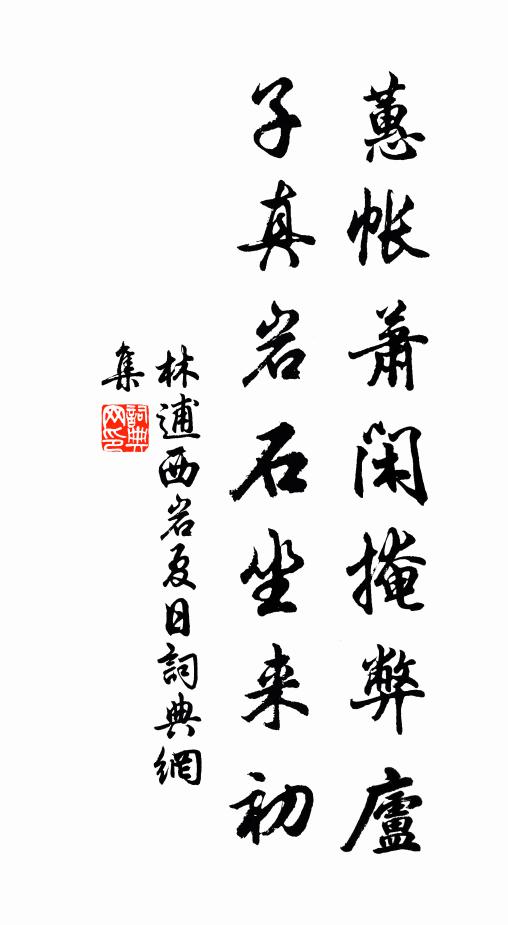 蕙帐萧闲掩弊廬
子真岩石坐来初
林逋西岩夏日詞典網
集
詞典
网印